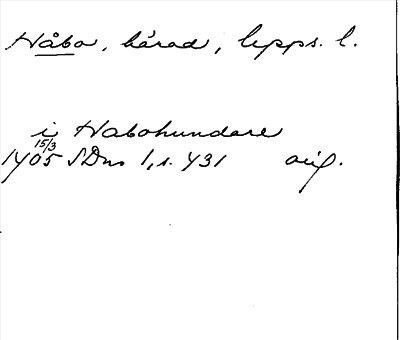 Håbo, härad, Upps. l.
i Habohundare
15/3
1405 SDns 1, s. 431 orig.